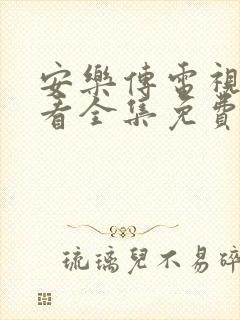 安樂傳電視
看全集免費
琉璃兒不易碎